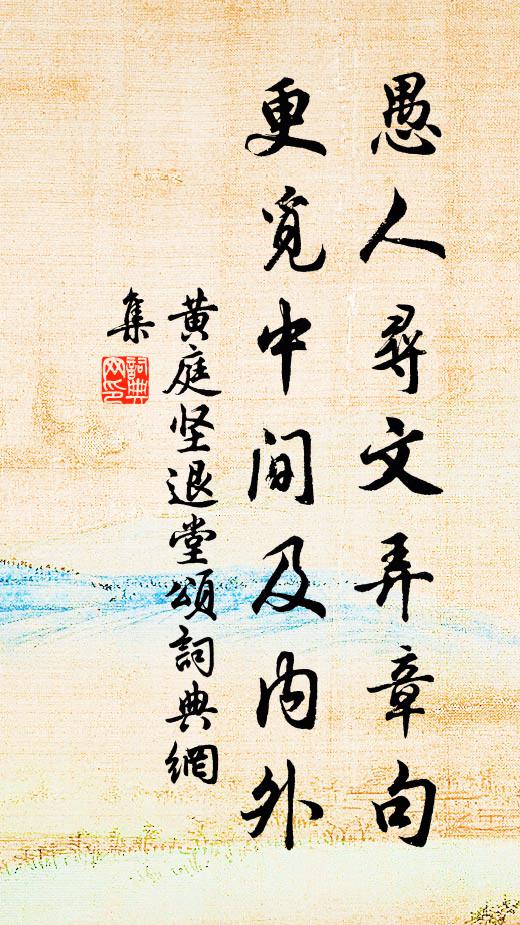 愚人尋文弄章句
更覓中間及内外
黄庭坚退堂頌詞典網
集
詞典
网印